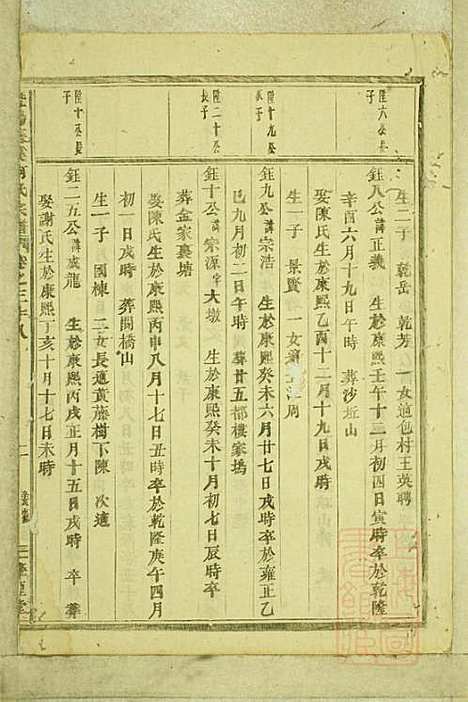 生二子 乾岳 乾芳 一女適包村王英聘
陞六公長子
鈺八公諱正義 生於康熙壬午十二月初四日寅時卒於乾隆
辛酉六月十九日午時 葬沙近山
娶陳氏生於康熙乙酉十二月十九日戌時
生一子 景賢 一女適 周
陞十九公長子
鈺九公諱宗浩 生於康熙癸未六月廿七日戌時卒於雍正乙
巳九月初二日午時 葬廿五都樓家塢
陞二十公長子
鈺十公諱宗源字大墩 生於康熙癸未十月初七日辰時卒
葬金家裏塘
娶陳氏生於康熙丙申八月十七日丑時卒於乾隆庚午四月
初一日戌時 葬閘橋山
生一子 國棟 二女長適黃藤樹下陳 次適
陞十公長子
鈺二五公諱成龍 生於康熙丙戌正月十五日戌時 卒 葬
娶謝氏生於康熙丁亥十月十七日未時
氏宗譜 卷之三十八